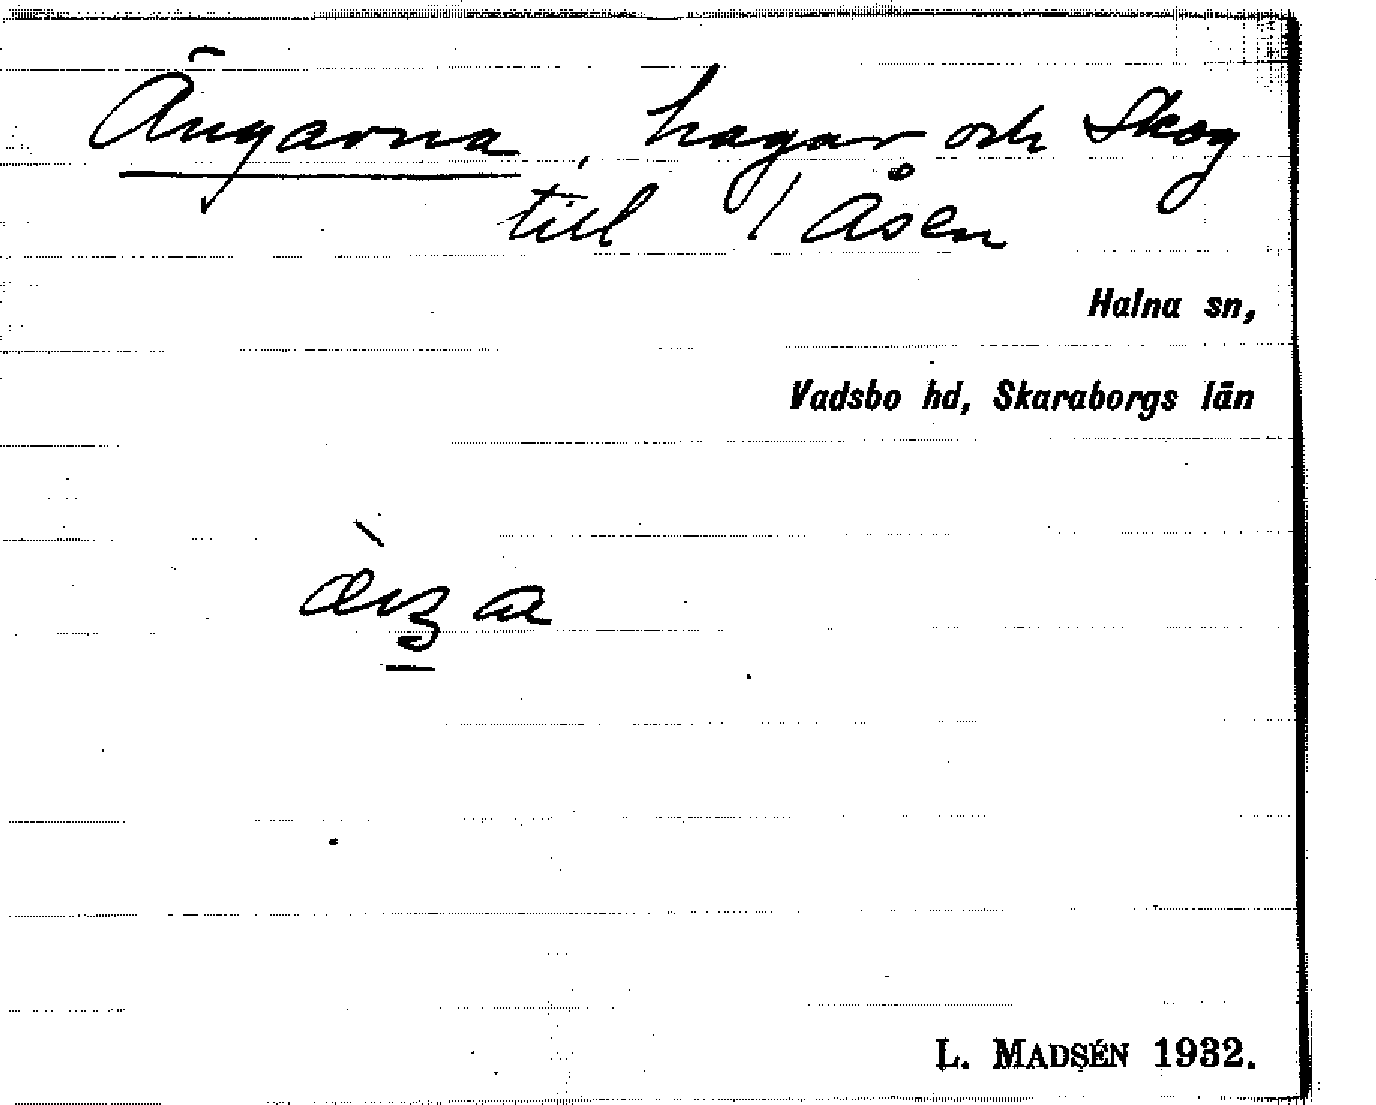 Ängarna, hagar och Skog
till 1 Åsen
Halna sn,
Vadsbo hd, Skaraborgs län
L. MADSÉN 1932.